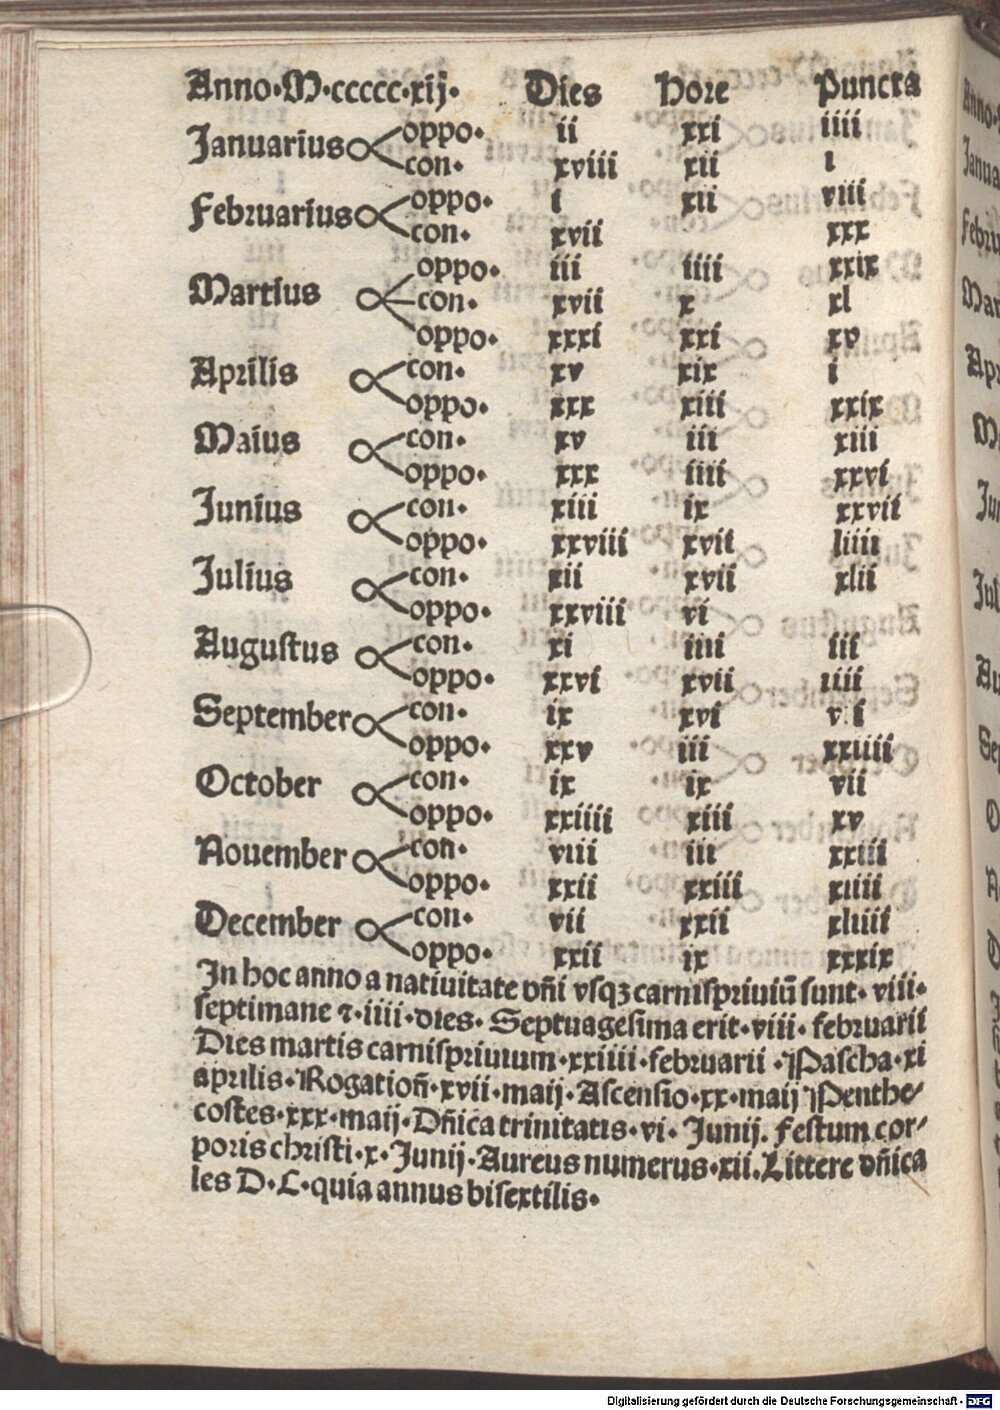 Anno·M·ccccc·xij· Dies Hore Puncta
Januarius oppo· ii xxi iiii
con· xviii xii i
Februarius oppo· i xii viii
con· xvii xxx
Martius oppo· iii iiii xxix
con· xvii x xl
oppo· xxxi xxi xv
Aprilis con· xv xix i
oppo· xxx xiii xxix
Maius con· xv iii xiii
oppo· xxx iiii xxvi
Junius con· xiii ix xxvii
oppo· xxviii xvii liiii
Julius con· xii xvii xlii
oppo· xxviii vi
Augustus con· xi iiii iii
oppo· xxvi xvii iiii
September con· ix xvi
oppo· xxv iii xxiiii
October con· ix ix vii
oppo· xxiiii xiii xv
Nouember con· viii iii xxiii
oppo· xxii xxiii xiiii
December con· vii xxii xliiii
oppo· xxii ix xxxix
In hoc anno a natiuitate dñi vsqꝫ carnispriuiũ sunt· viii·
septimane ⁊·iiii·dies· Septuagesima erit·viii· februarii
Dies martis carnispriuium·xxiiii·februarii ·Pascha·xi
aprilis·Rogationñ·xvii·maij·Ascensio·xx·maij Penthe⸗
costes·xxx·maij·Dñica trinitatis·vi· Junij. Festum cor⸗
poris christi·x·Junij·Aureus numerus·xii.Littere dñica
les D·C·quia annus bisextilis·
Digitalisierung gefördert durch die Deutsche Forschungsgemeinschaft · DFG